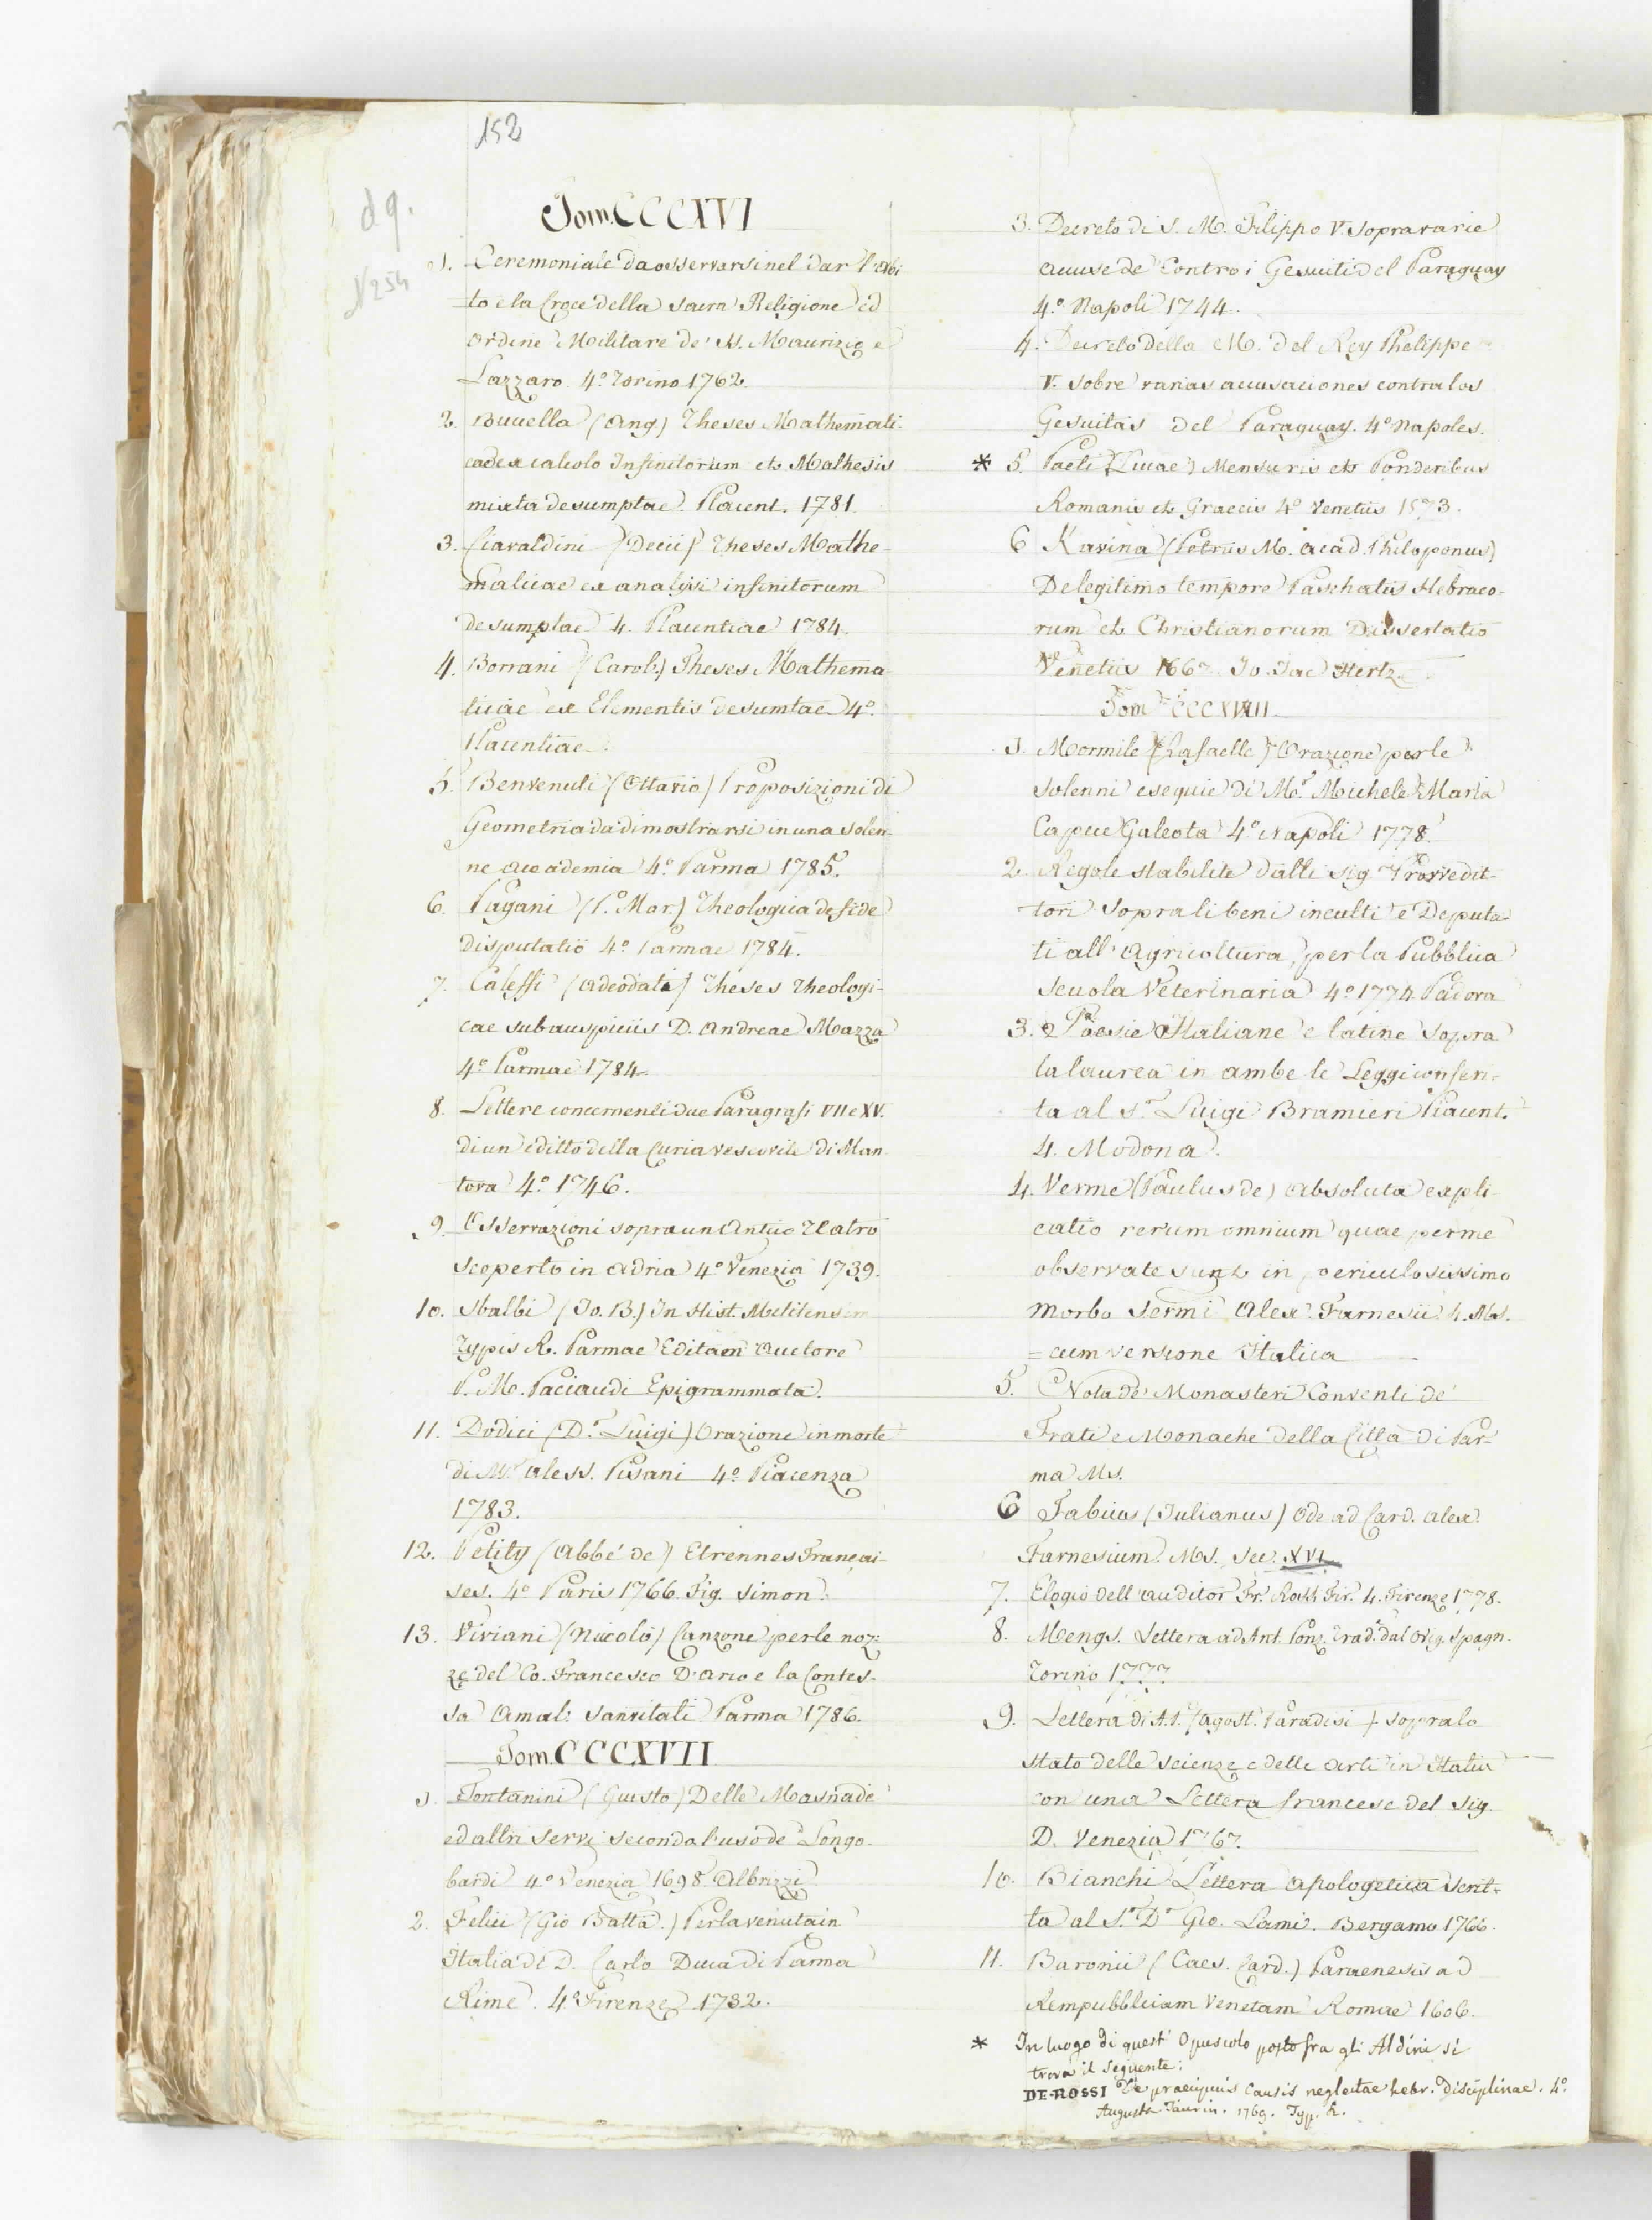 152
d 9.
N 254
Tom. CCCXVI
1. Ceremoniale da osservarsi nel dar l'abi
to e la Croce della sacra Religione ed
Ordine Militare de' SS. Maurizio e
Lazzaro. 4.º Torino 1762.
2. Buccella (Ang.) Theses Mathemati-
cae ex calcolo Infinitorum et Mathesis
mixta desumptae. Placent. 1781.
3. Ciaraldini (Decii) Theses Mathe-
maticae ex analysi infinitorum
desumptae 4. Placentiae 1784.
4. Borrani (Carol.) Theses Mathema
ticae ex Elementis desumtae 4.º
Placentiae.
5. Benvenuti (Ottavio) Proposizioni di
Geometria da dimostrarsi in una solen-
ne accademia 4.º Parma 1785.
6. Pagani (P. Mar.) Theologica de fide
disputatio 4.º Parmae 1784.
7. Caleffi (Adeodati) Theses Theologi-
cae sub auspiciis D. Andreae Mazza
4.º Parmae 1784.
8. Lettere concernenti due Paragrafi VII e XV.
di un editto della Curia vescovile di Man
tova 4.º 1746.
9. Osservazioni sopra un Antico Teatro
scoperto in Adria 4.º Venezia 1739.
10. Sbalbi (Jo. B.) In Hist. Melitensem
Typis R. Parmae Editam Auctore
P. M. Paciaudi Epigrammata.
11. Dodici (D.r Luigi) Orazione in morte
di M.r Aless. Pisani 4.º Piacenza
1783.
12. Petity (Abbé de) Etrennes Françai-
ses. 4.º Paris 1766. Fig. Simon.
13. Viviani (Nicolò) Canzone per le noz-
ze del Co. Francesco D'Arco e la Contes-
sa Amal: Sanvitali Parma 1786.
Tom. CCCXVII
1. Fontanini (Giusto) Delle Masnade
ed altri servi secondo l'uso de' Longo-
bardi 4.º Venezia 1698. Albrizzi
2. Felici (Gio Batta.) Per la venuta in
Italia di D. Carlo Duca di Parma
Rime. 4.º Firenze 1732.
3. Decreto di S. M. Filippo V. sopra varie
accuse de' contro i Gesuiti del Paraguay
4.º Napoli 1744.
4. Decreto della M. del Rey Phelippe
V. sobre varias accusaciones contra los
Gesuitas del Paraguay. 4.º Napoles.
* 5. Paeti (Lucae) Mensuris et Ponderibus
Romanis et Graecis 4.º Venetiis 1573.
6 Kavina (Petrus M. Acad. Philoponus)
De legitimo tempore Paschatis Hebraeo-
rum et Christianorum Dissertatio
Venetiis 1667 Jo. Jac Hertz.
Tom CCCXVIII.
1. Mormile (Rafaelle) Orazione per le
solenni esequie di M.r Michele Maria
Capuc Galeota 4.º Napoli 1778.
2. Regole stabilite dalli Sig. Provvedit-
tori sopra li beni inculti e Deputa
ti all'Agricoltura, per la Pubblica
Scuola Veterinaria 4.º 1774. Padova
3. Poesie Italiane e latine sopra
la laurea in ambe le Leggi conferi-
ta al S.r Luigi Bramieri Piacent.
4. Modona.
4. Verme (Paulus de) Absoluta expli-
catio rerum omnium quae per me
observate sunt in periculosissimo
morbo Sermi Alex. Farnesii. 4. Ms.
= cum versione Italica
5. Nota de' Monasteri Conventi de'
Frati e Monache della Città di Par-
ma Ms.
6 Fabius (Julianus) Ode ad Card. Alex.
Farnesium. Ms. Sec. XVI
7. Elogio dell'auditor Fr. Rossi Fir. 4. Firenze 1778.
8. Mengs. Lettera ad Ant. Ponz. Trad. dal orig. Spagn.
Torino 1777
9. Lettera di A.P. (Agost. Paradisi) sopra lo
stato delle scienze e delle arti in Italia
con una Lettera francese del Sig.
D. Venezia 1767.
10. Bianchi Lettera apologetica scrit-
ta al S.r D.r Gio. Lami. Bergamo 1766.
11. Baronii (Caes. Card.) Paraenesis ad
Rempubblicam Venetam Romae 1606.
* In luogo di quest' Opuscolo posto fra gli Aldini si
trova il seguente:
DE-ROSSI De praecipuis causis neglectae hebr. disciplinae. 4.º
Augustae Taurin. 1769. Typ. R.